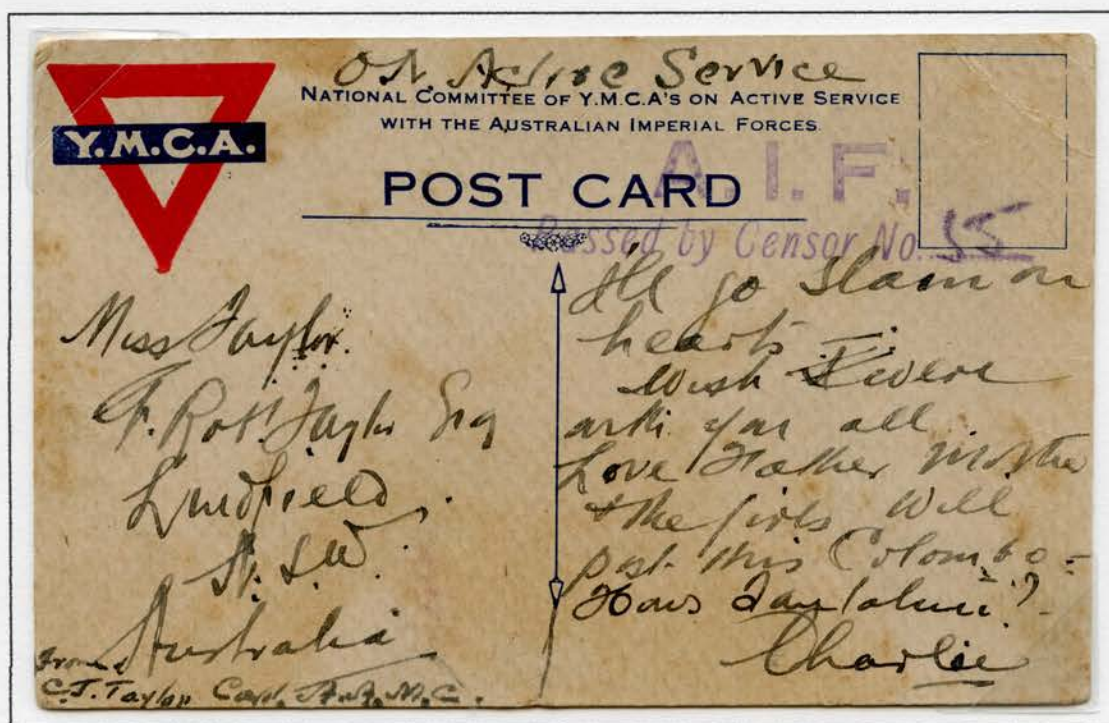 ON Active Service
NATIONAL COMMITTEE OF Y.M.C.A'S ON ACTIVE SERVICE
WITH THE AUSTRALIAN IMPERIAL FORCES.
Y.M.C.A.
A.I.F.
POST CARD
Passed by Censor No. 55
Miss Taylor.
Robt. Taylor Esq
Lindfield.
N.S.W.
Australia
From
C.J. Taylor Capt. A.A.M.C.
I'll go Slam on
hearts
Wish I were
with you all
Love Father Mother
& the girls Will
post this Colombo -
Hows ?
Charlie